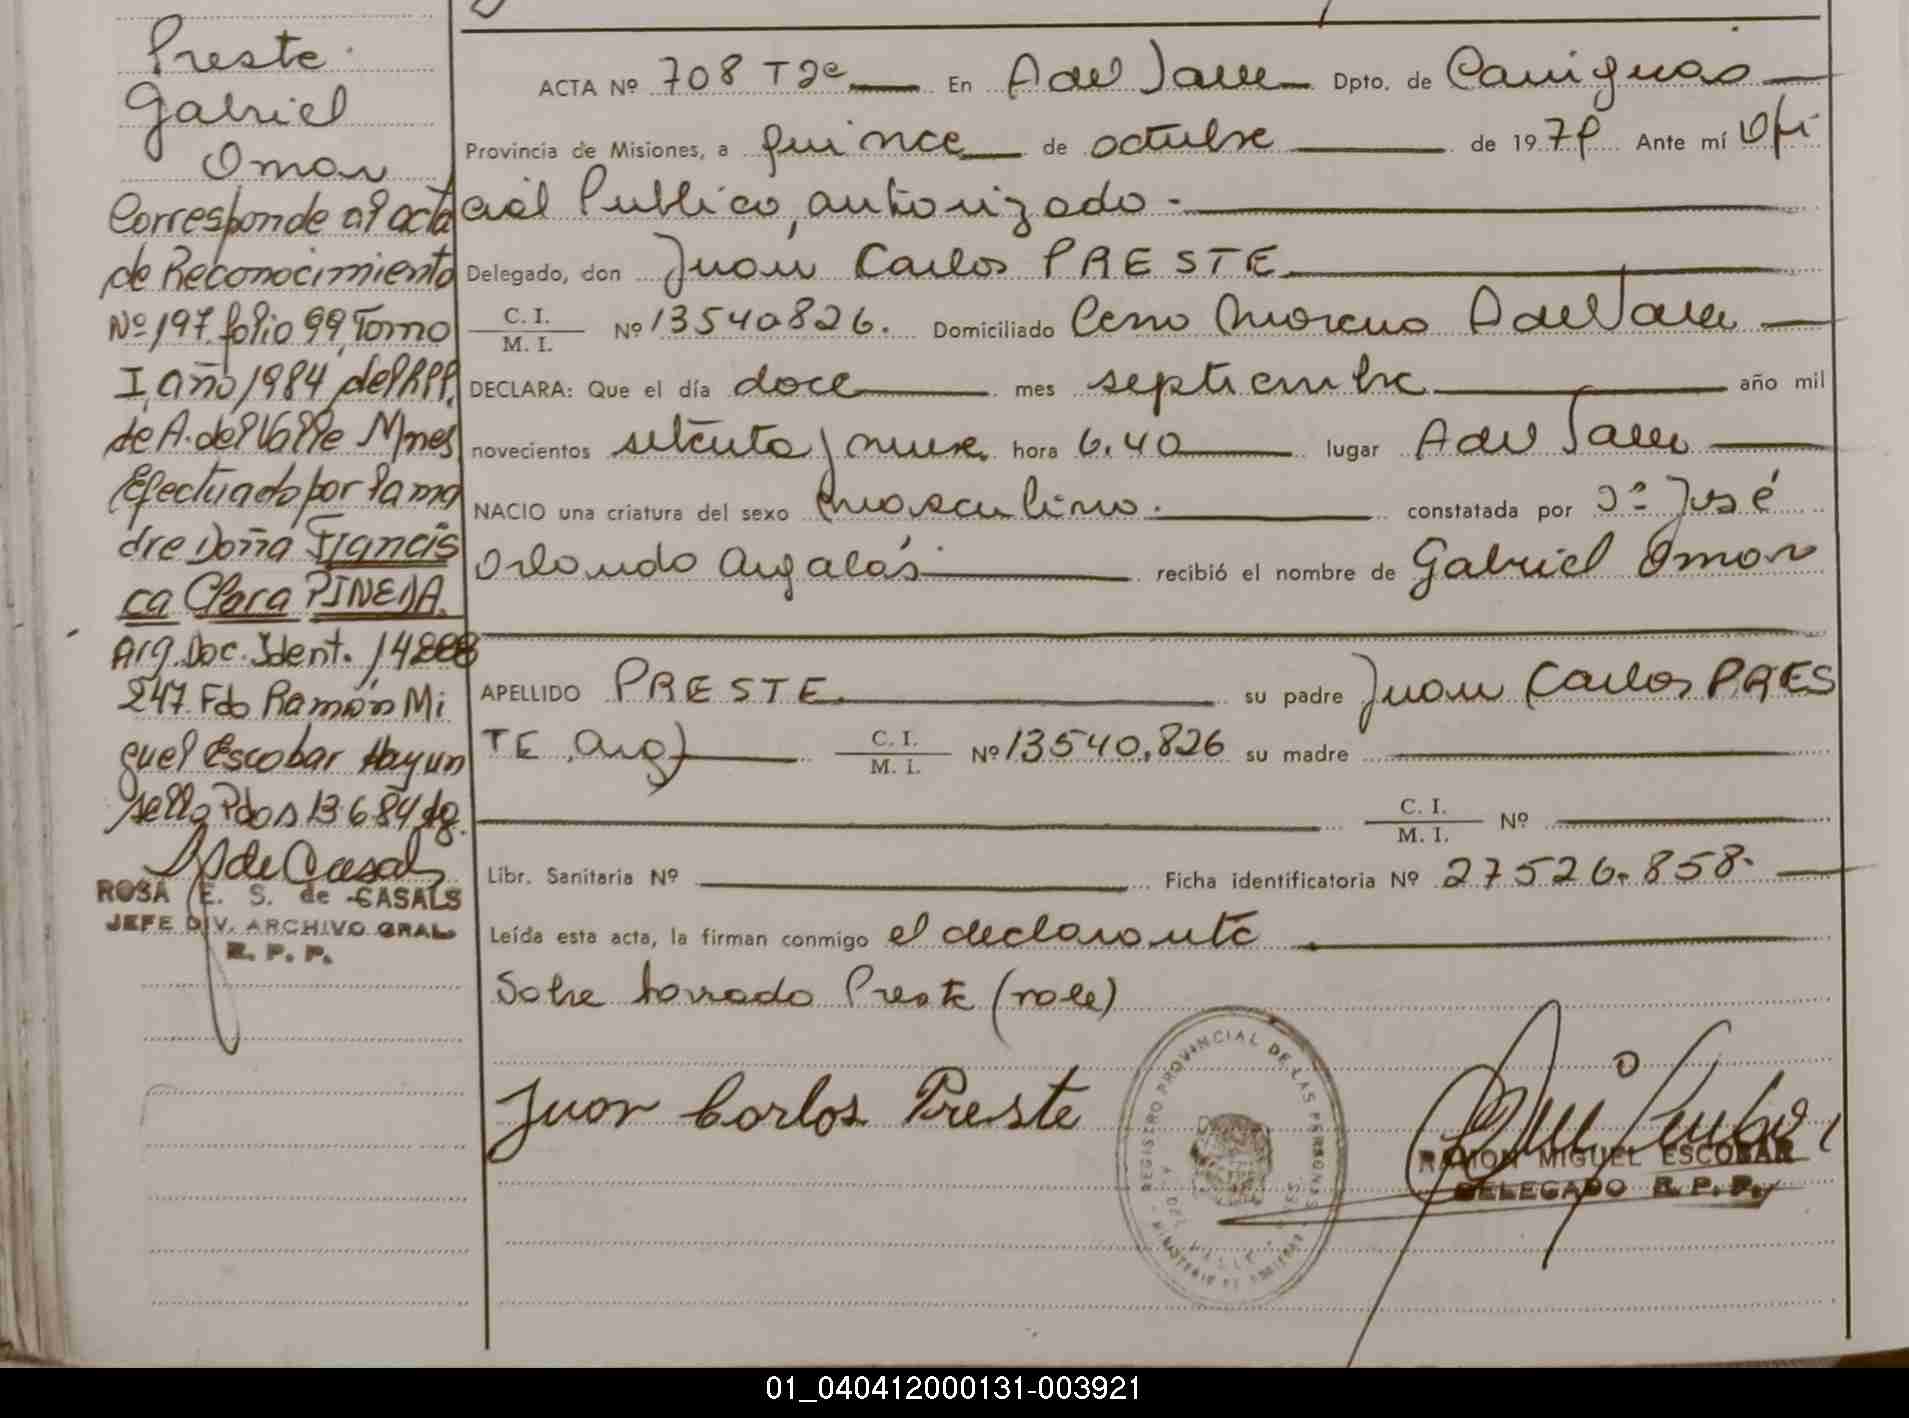 Preste
Gabriel
Omar
Corresponde al acta
de Reconocimiento
Nº 197 folio 99, Tomo
I, año 1984, del RPP.
de A. del Valle Mnes
Efectuado por la ma
dre Doña Francis
ca Clara PINEDA.
Arg. Doc. Ident. 14888
247. Fdo Ramón Mi
guel Escobar Hay un
sello Pdas 13.6.84 dg.
de Casals
ROSA E. S. de CASALS
JEFE DIV. ARCHIVO GRAL
R. P. P.
ACTA Nº 708 T 2º En A del Valle Dpto. de Cainguas
Provincia de Misiones, a quince de octubre de 1979 Ante mí Ofi
cial Publico autorizado.
Delegado, don Juan Carlos PRESTE
C. I. / M. I. Nº 13540826. Domiciliado Cerro Moreno A del Valle
DECLARA: Que el día doce mes septiembre año mil
novecientos setenta y nueve hora 6.40 lugar A del Valle
NACIO una criatura del sexo masculino. constatada por Dº José
Orlando recibió el nombre de Gabriel Omar
APELLIDO PRESTE. su padre Juan Carlos PRES
TE, Arg) C. I. / M. I. Nº 13540.826 su madre
C. I. / M. I. Nº
Libr. Sanitaria Nº Ficha identificatoria Nº 27526.858.
Leída esta acta, la firman conmigo el declarante
Sobre borrado Preste (vale)
Juan Carlos Preste
REGISTRO PROVINCIAL DE LAS PERSONAS
A. DEL VALLE
MINISTERIO DE GOBIERNO
RAMON MIGUEL ESCOBAR
DELEGADO R. P. P.
01_040412000131-003921